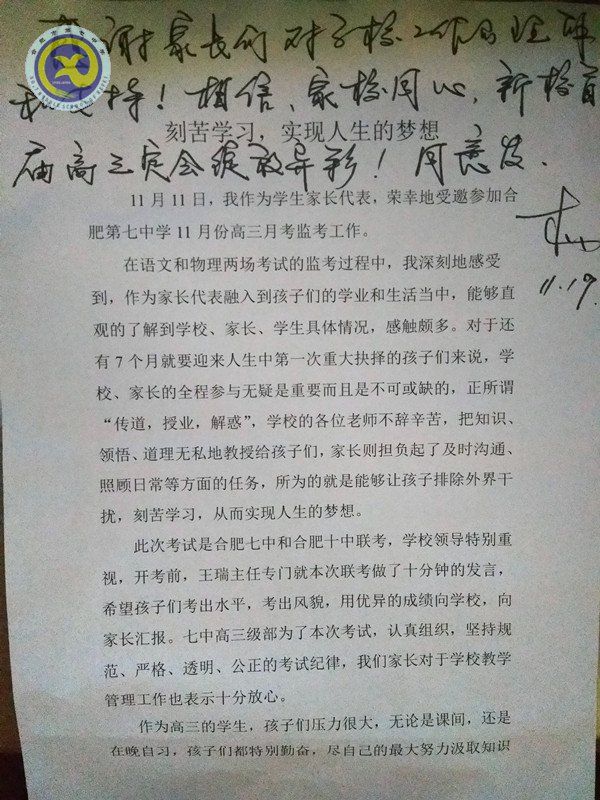 感谢家长们对学校工作的理解
和支持！相信，家校同心，新校首
刻苦学习，实现人生的梦想
届高三定会绽放异彩！同意发．
11.19.
11 月 11 日，我作为学生家长代表，荣幸地受邀参加合
肥第七中学 11 月份高三月考监考工作。
在语文和物理两场考试的监考过程中，我深刻地感受
到，作为家长代表融入到孩子们的学业和生活当中，能够直
观的了解到学校、家长、学生具体情况，感触颇多。对于还
有 7 个月就要迎来人生中第一次重大抉择的孩子们来说，学
校、家长的全程参与无疑是重要而且是不可或缺的，正所谓
“传道，授业，解惑”，学校的各位老师不辞辛苦，把知识、
领悟、道理无私地教授给孩子们，家长则担负起了及时沟通、
照顾日常等方面的任务，所为的就是能够让孩子排除外界干
扰，刻苦学习，从而实现人生的梦想。
此次考试是合肥七中和合肥十中联考，学校领导特别重
视，开考前，王瑞主任专门就本次联考做了十分钟的发言，
希望孩子们考出水平，考出风貌，用优异的成绩向学校，向
家长汇报。七中高三级部为了本次考试，认真组织，坚持规
范、严格、透明、公正的考试纪律，我们家长对于学校教学
管理工作也表示十分放心。
作为高三的学生，孩子们压力很大，无论是课间，还是
在晚自习，孩子们都特别勤奋，尽自己的最大努力汲取知识